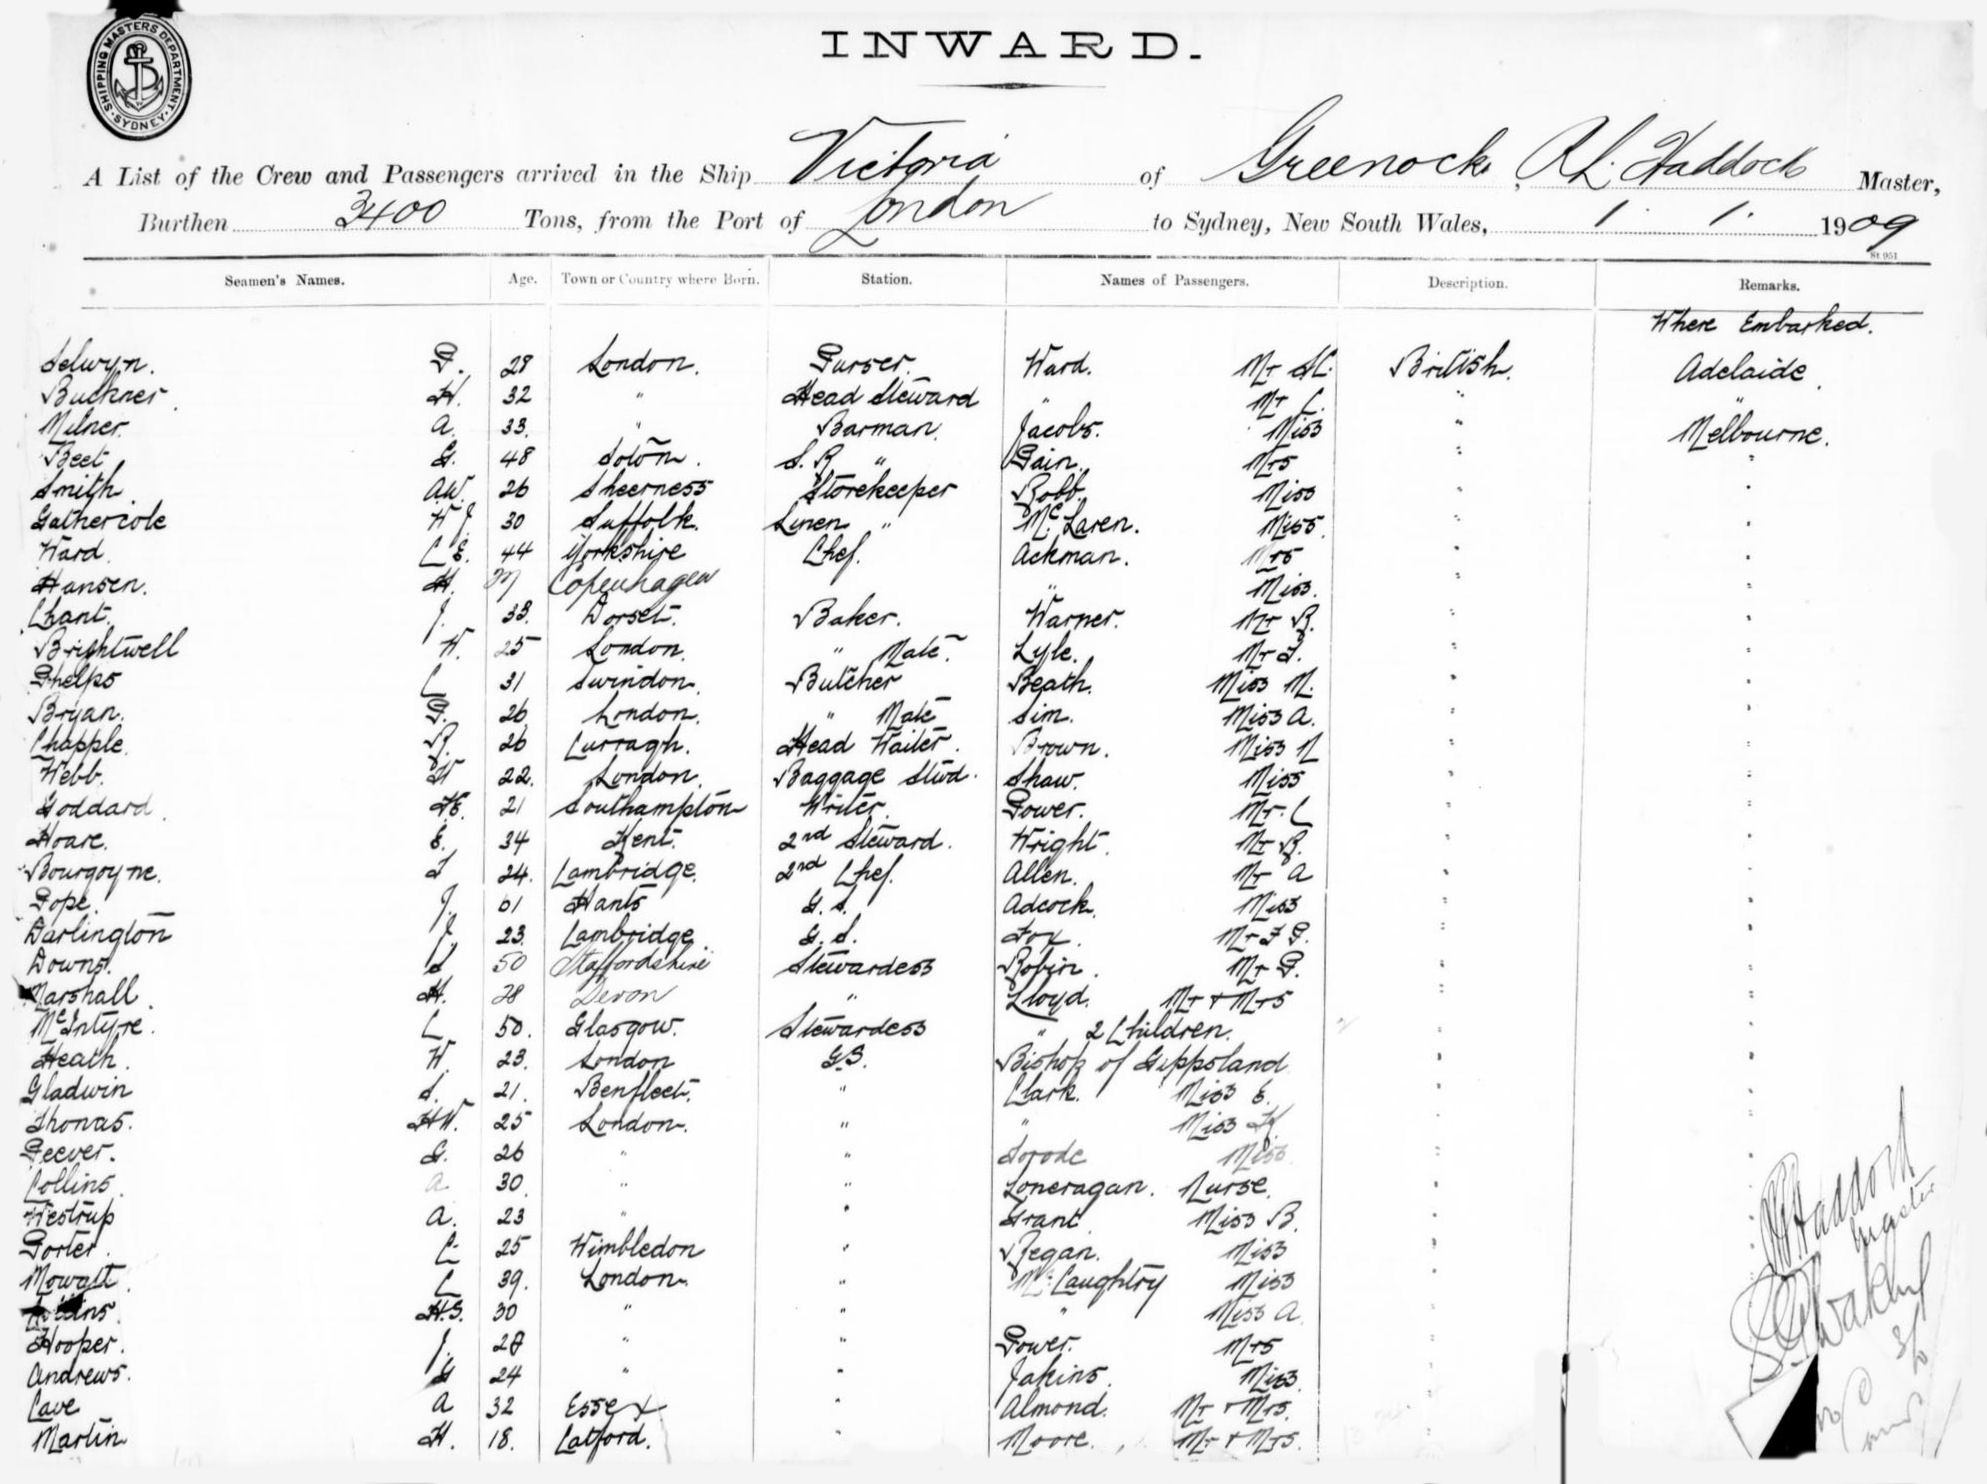 SHIPPING MASTERS DEPARTMENT. SYDNEY.
INWARD.
A List of the Crew and Passengers arrived in the Ship Victoria of Greenock, Master,
Burthen 3400 Tons, from the Port of London to Sydney, New South Wales, 1. 1. 1909
St 951
Seamen's Names. Age. Town or Country where Born. Station. Names of Passengers. Description. Remarks.
Where Embarked.
Selwyn. P. 28 London. Purser. Ward. Mr British. Adelaide.
Buckner. H. 32 " Head Steward " Mr C. " "
Milner. A. 33. " Barman. Jacobs. Miss " Melbourne.
Beet G. 48 Soton. S. R " Pain. Mrs " "
Smith A.W. 26 Sheerness Storekeeper Robb. Miss " "
Gathercole W J. 30 Suffolk. Linen " McLaren. Miss. " "
Ward. C E. 44 Yorkshire Chef. Ackman. Mrs " "
Hansen. H. Copenhagen " Miss. " "
Chant. J. 33. Dorset. Baker. Warner. Mr R. " "
Brightwell W. 25 London. " Mate. Lyle. Mr " "
Phelps C 31 Swindon. Butcher Beath. Miss M. " "
Bryan. P. 26 London. " Mate Sim. Miss A. " "
Chapple. R. 26 Curragh. Head Waiter. Brown. Miss N " "
Webb. W 22. London. Baggage Stwd. Shaw. Miss " "
Goddard. 21 Southampton Writer. Power. Mr. C " "
Hoare. E. 34 Kent. 2nd Steward. Wright. Mr R. " "
Bourgoyne. F 24. Cambridge. 2nd Chef. Allen. Mr A " "
Pope. J. 61 Hants G. S. Adcock. Miss " "
Darlington J. 23. Cambridge. G. S. Fox. Mr F P. " "
Downs. S 50 Staffordshire Stewardess Robin. Mr P. " "
Marshall. H. 28 Devon " Lloyd. Mr + Mrs " "
McIntyre. C 50. Glasgow. Stewardess " 2 Children. " "
Heath. W. 23. London G.S. Bishop of Gippsland " "
Gladwin S. 21. Benfleet. " Clark. Miss E. " "
Thomas. H W. 25 London. " " Miss " "
Peever. G. 26 " " Miss. " "
Collins. A. 30. " " Loneragan. Nurse. " "
Westrup A. 23 " " Grant Miss B. " "
Porter. C. 25 Wimbledon " Regan. Miss " "
Mowatt. C 39. London. " McCaughtry Miss " "
H.S. 30 " " " Miss A. "
Hooper. J. " " Power. Mrs "
Andrews. G 24 " " Jakins. Miss. "
Cave A 32 Essex " Almond. Mr + Mrs. "
Martin H. 18. Catford. " Moore. Mr + Mrs. "
Haddock
Master